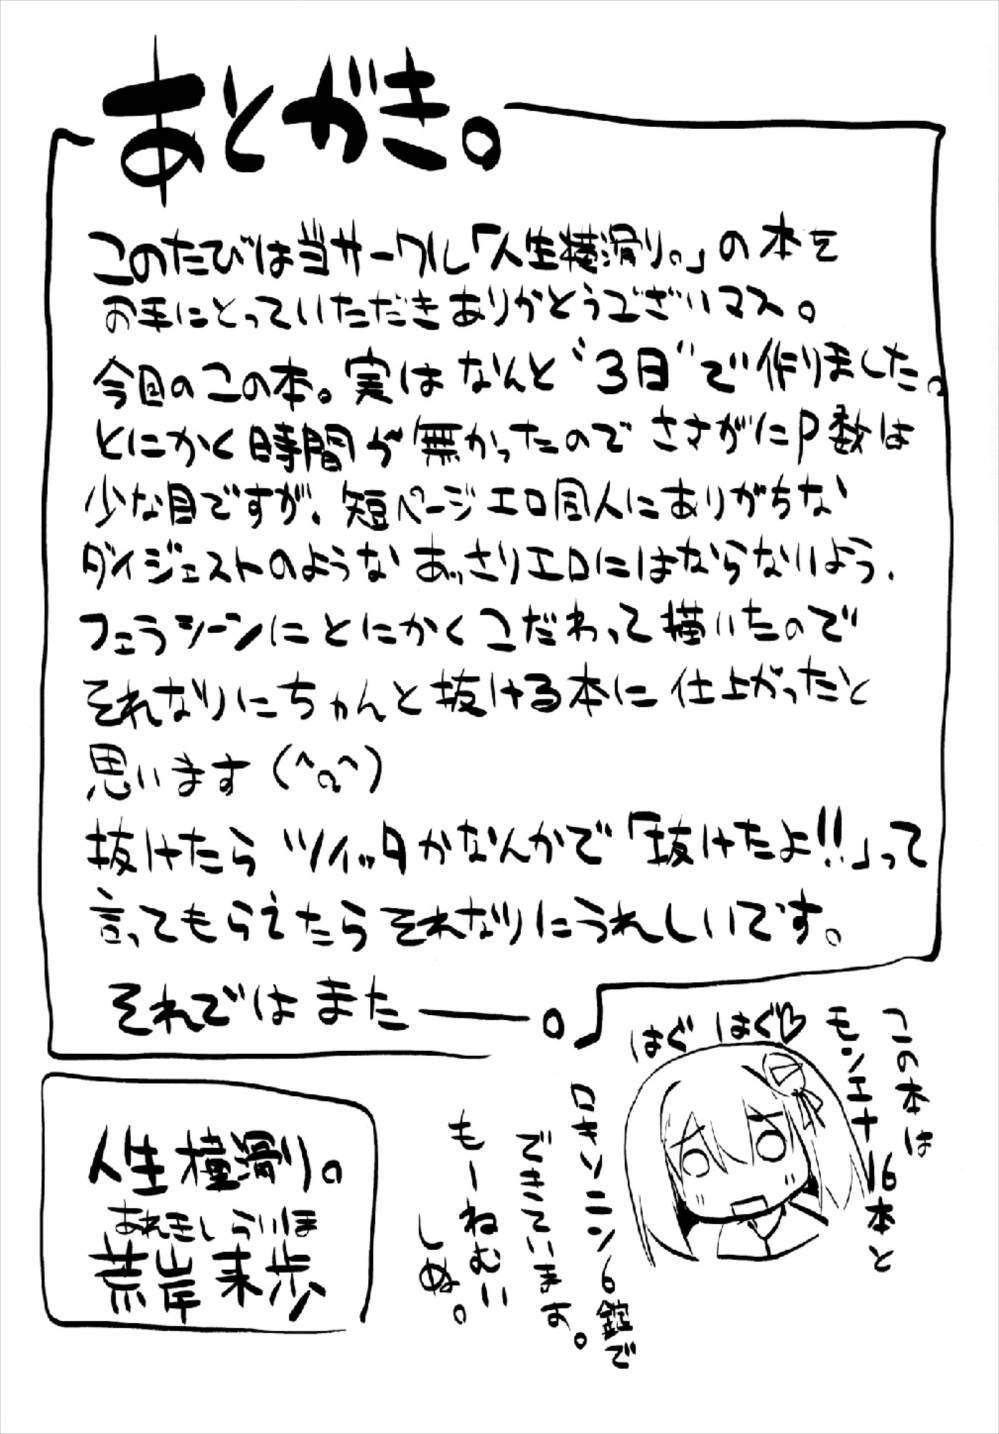 あとがき。
このたびは当サークル「人生横滑り。」の本を
お手にとっていただきありがとうございマス。
今回のこの本。実はなんと"3日"で作りました。
とにかく時間が無かったのでさすがにP数は
少な目ですが、短ページエロ同人にありがちな
ダイジェストのようなあっさりエロにはならないよう、
フェラシーンにとにかくこだわって描いたので
それなりにちゃんと抜ける本に仕上がったと
思います(^q^)
抜けたらツイッタかなんかで「抜けたよ!!」って
言ってもらえたらそれなりにうれしいです。
それではまたー。
はぐはぐ♡
この本は
モンエナ16本と
ロキソニン6錠で
できています。
もーねむい
しぬ。
人生横滑り。
あれきしらいほ
荒岸来歩